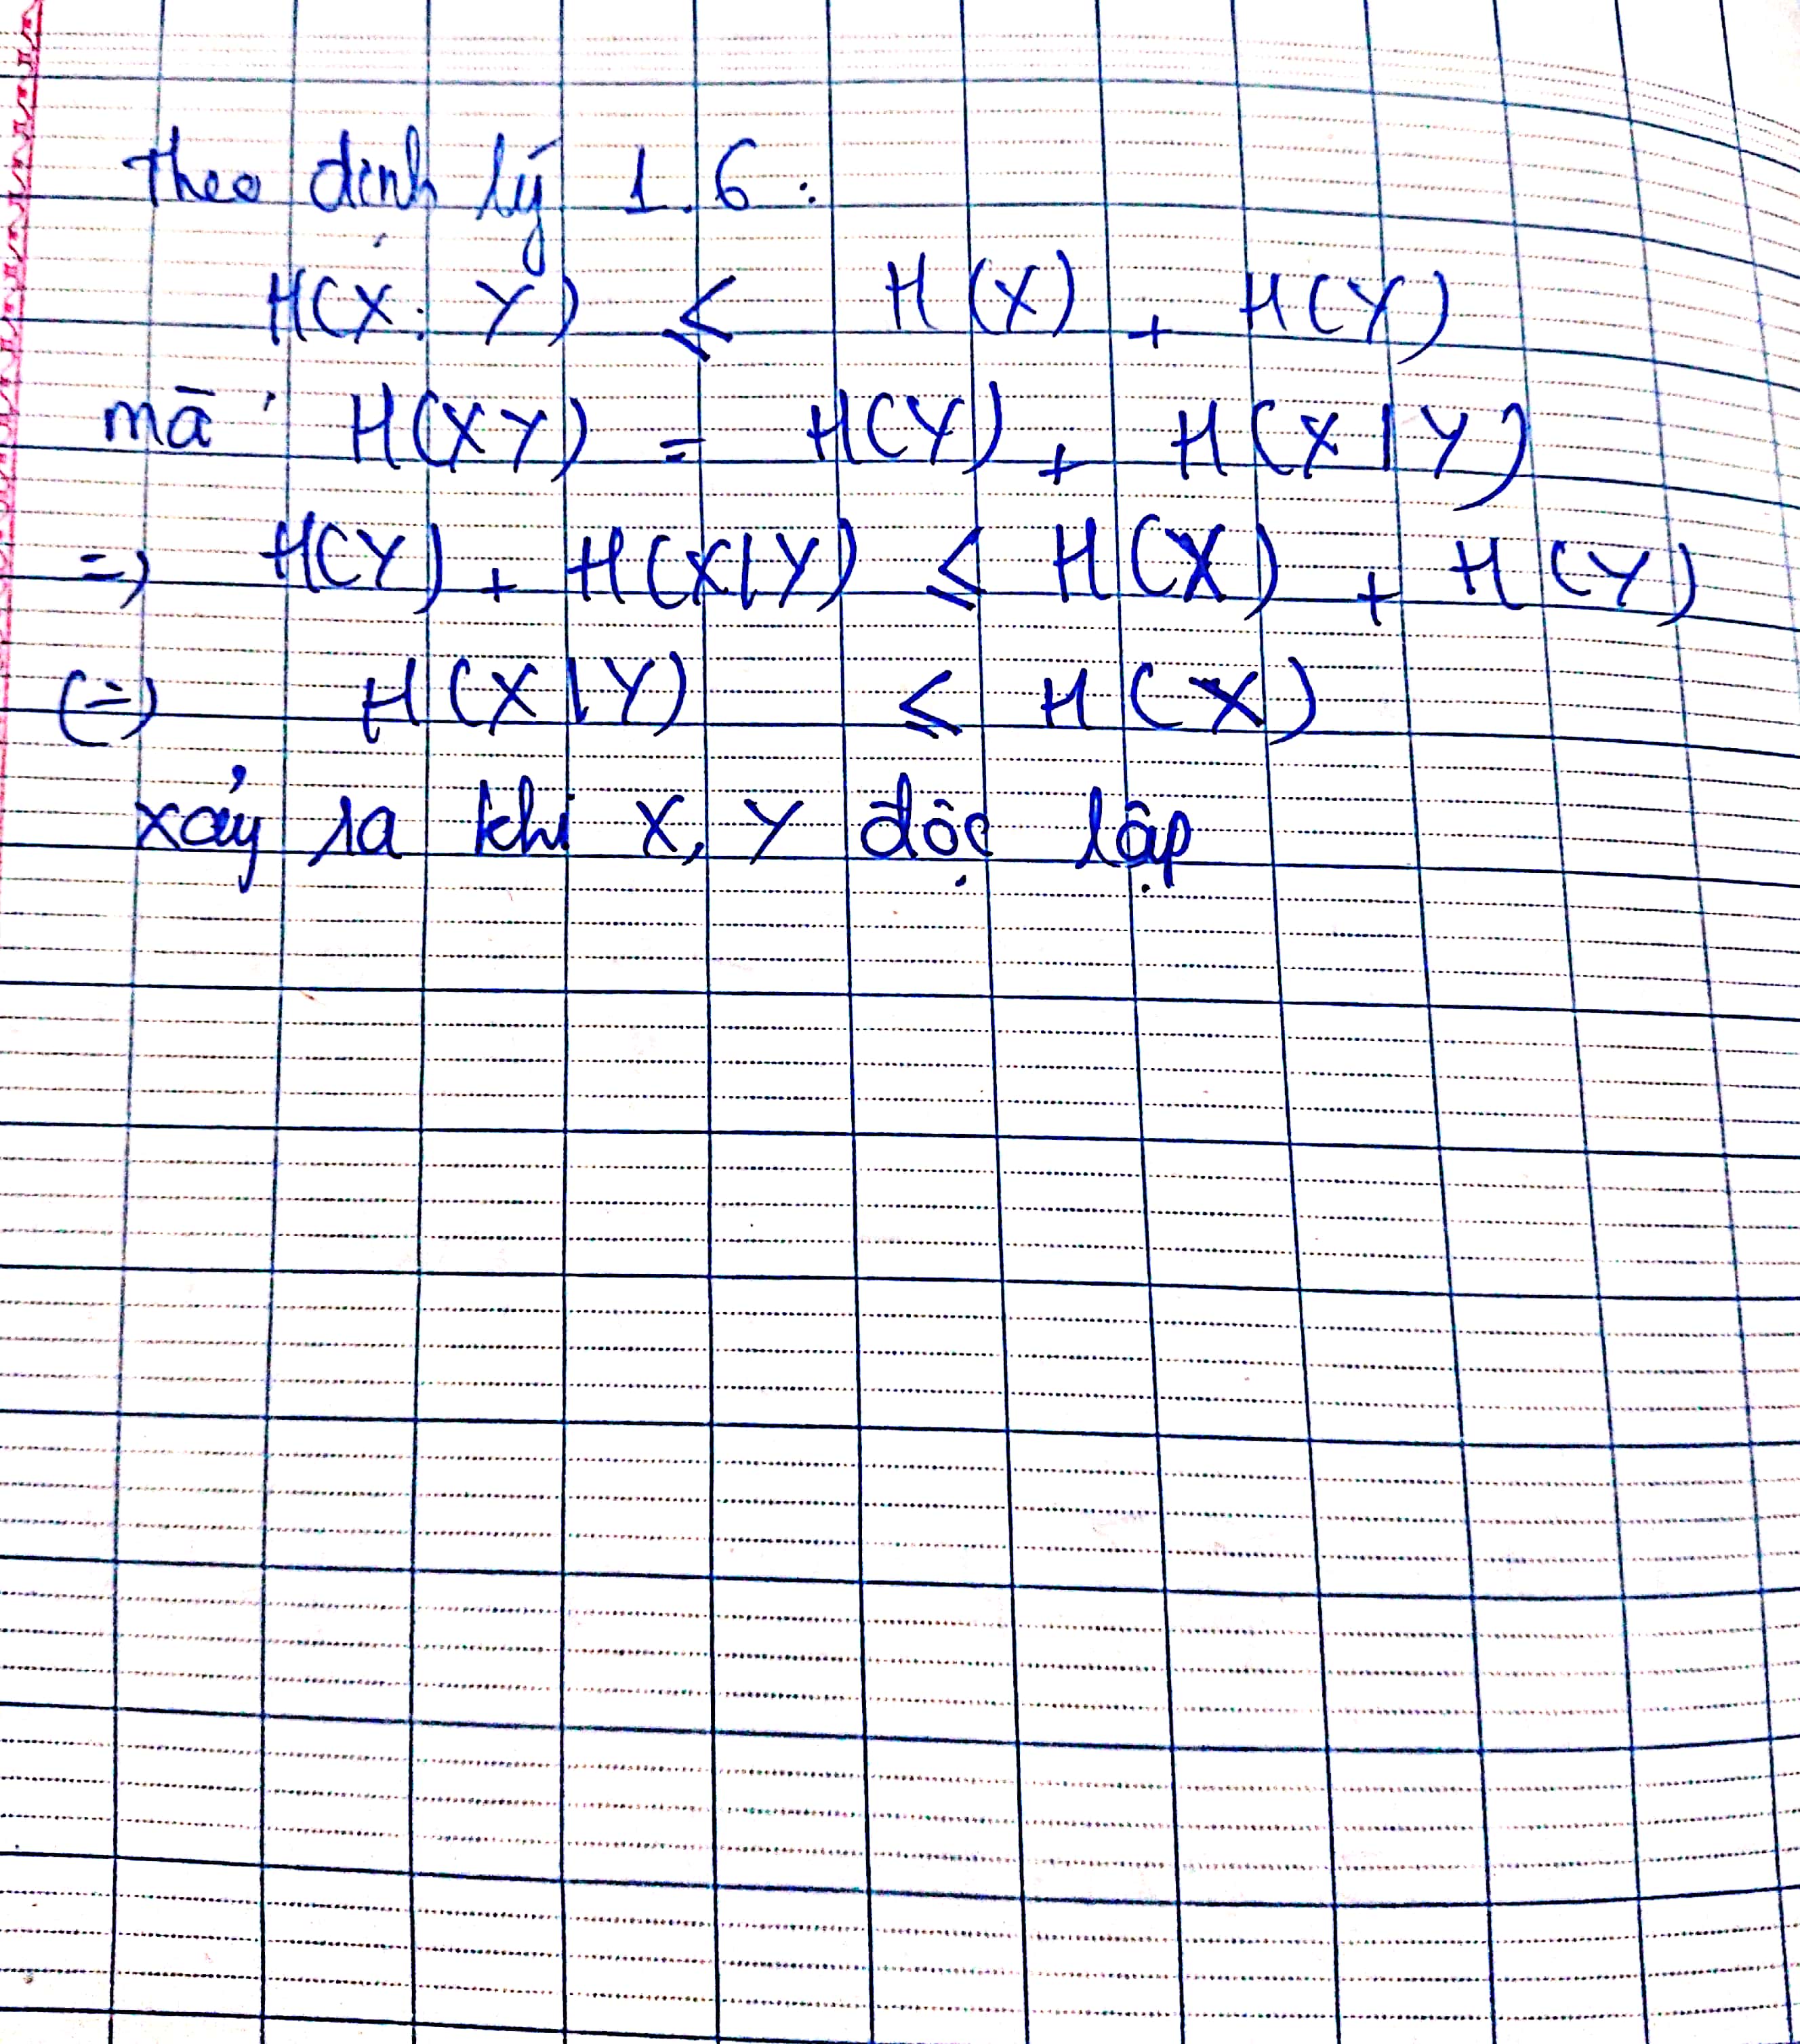 Theo định lý 1.6:
H(X; Y) ≤ H(X) + H(Y)
mà H(XY) = H(Y) + H(X|Y)
=> H(Y) + H(X|Y) ≤ H(X) + H(Y)
(=) H(X|Y) ≤ H(X)
xảy ra khi X, Y độc lập